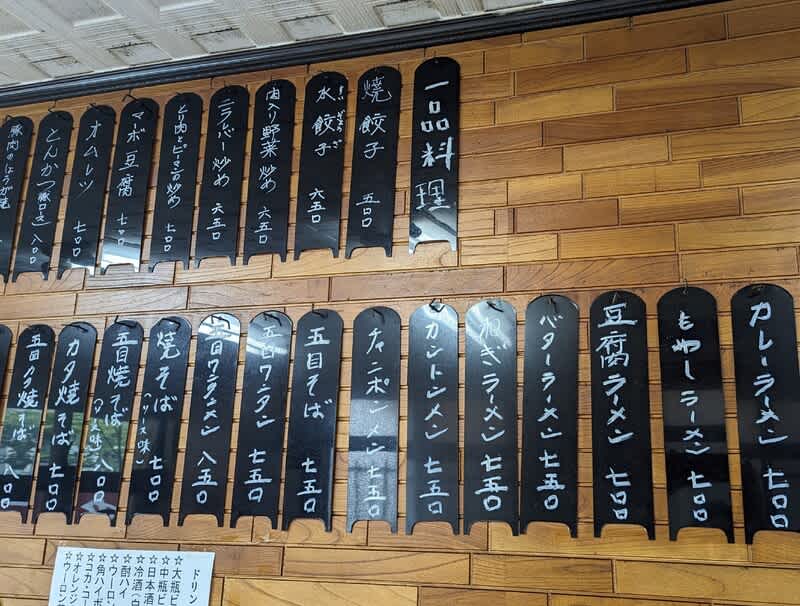 一品料理
焼餃子 五〇〇
水餃子 六五〇
すい ぎょうざ
肉入り野菜炒め 六五〇
ニラレバー炒め 六五〇
とり肉とピーマンの炒め 七〇〇
マボ豆腐 七〇〇
オムレツ 七〇〇
とんかつ 八〇〇
豚肉のしょうが焼
カレーラーメン 七〇〇
もやしラーメン 七〇〇
豆腐ラーメン 七〇〇
バターラーメン 七五〇
ねぎラーメン 七五〇
カントンメン 七五〇
チャンポンメン 七五〇
五目そば 七五〇
五目ワンタン 七五〇
五目ワンタンメン 八五〇
焼そば（ソース味） 七〇〇
五目焼そば（ソース味） 八〇〇
カタ焼そば 七〇〇
五目カタ焼そば 八〇〇
ドリン
☆大瓶ビ
☆中瓶ビ
☆日本酒
☆冷酒（白
☆酎ハイ
☆ウーロン
☆角ハイボ
☆コカ・コー
☆オレンジ
☆ウーロン